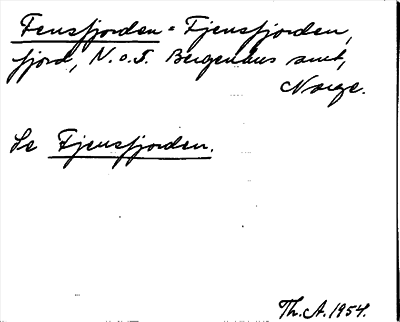 Fensfjorden = Fjensfjorden,
fjord, N. o. S. Bergenhus amt,
Norge.
Se Fjensfjorden.
Th. A. 1954.